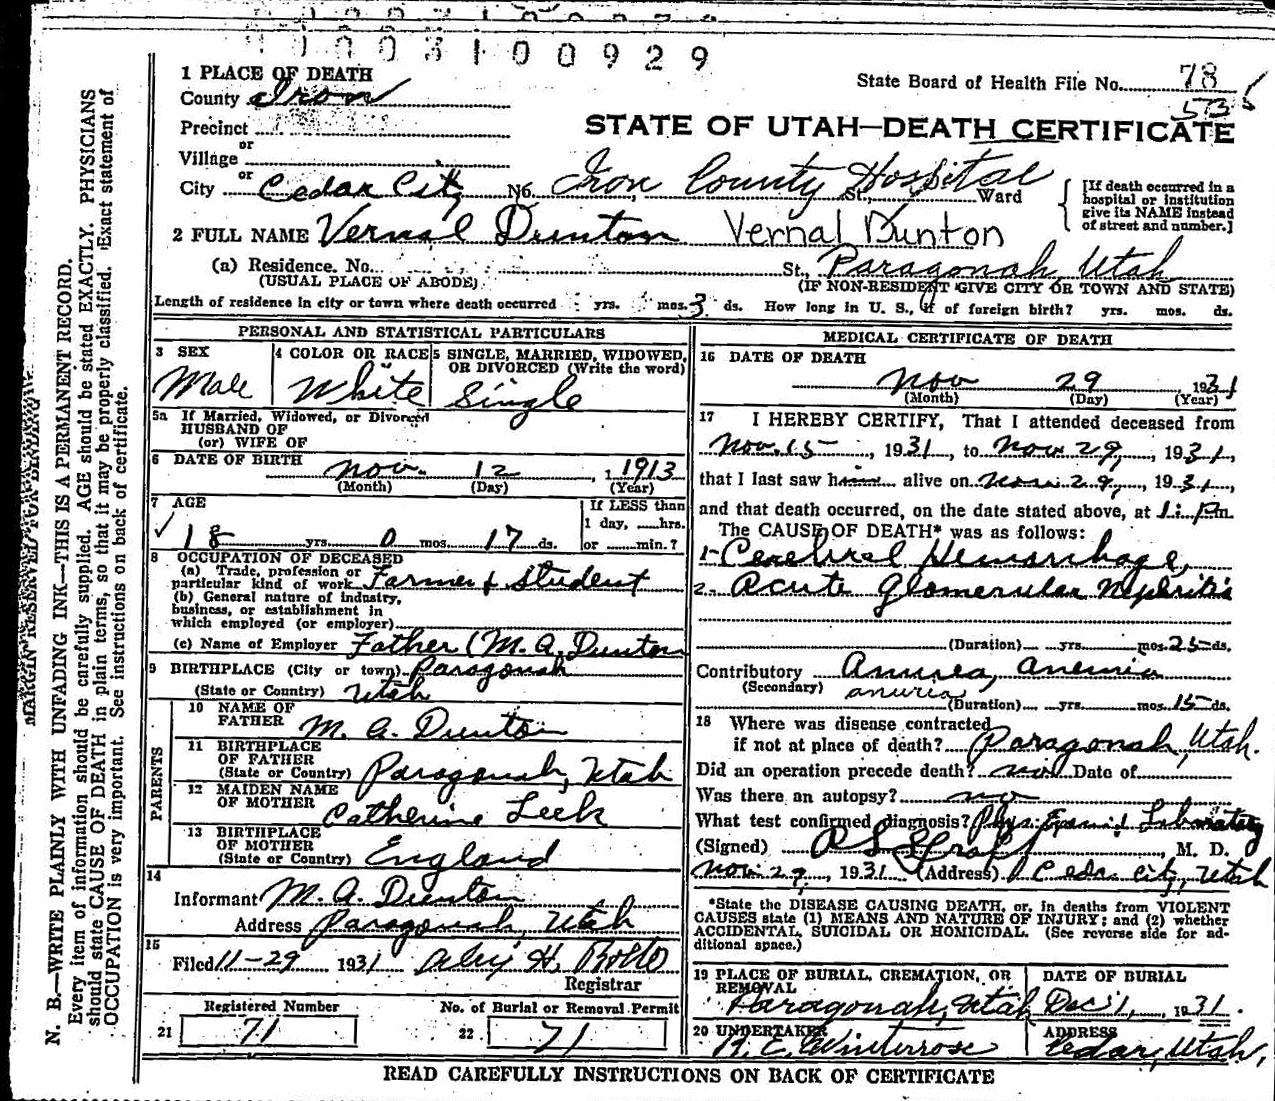 1 0 0 3 1 0 0 9 2 9
1 PLACE OF DEATH
County Iron
State Board of Health File No. 78
573
Precinct
or
Village
or
STATE OF UTAH—DEATH CERTIFICATE
City Cedar City No. Iron County Hospital St., Ward
[If death occurred in a hospital or institution give its NAME instead of street and number.]
2 FULL NAME Vernal Dunton Vernal Dunton
(a) Residence. No. St., Paragonah, Utah
(USUAL PLACE OF ABODE) (IF NON-RESIDENT GIVE CITY OR TOWN AND STATE)
Length of residence in city or town where death occurred yrs. mos. 3 ds. How long in U. S., if of foreign birth? yrs. mos. ds.
PERSONAL AND STATISTICAL PARTICULARS
3 SEX
Male
4 COLOR OR RACE
White
5 SINGLE, MARRIED, WIDOWED, OR DIVORCED (Write the word)
Single
5a If Married, Widowed, or Divorced
HUSBAND OF
(or) WIFE OF
6 DATE OF BIRTH Nov. 12, 1913
(Month) (Day) (Year)
7 AGE
18 yrs. 0 mos. 17 ds.
If LESS than
1 day, ....hrs.
or ......min.?
8 OCCUPATION OF DECEASED
(a) Trade, profession or
particular kind of work Farmer & Student
(b) General nature of industry,
business, or establishment in
which employed (or employer)
(c) Name of Employer Father (M. A. Dunton
9 BIRTHPLACE (City or town) Paragonah
(State or Country) Utah
PARENTS
10 NAME OF
FATHER M. A. Dunton
11 BIRTHPLACE
OF FATHER
(State or Country) Paragonah, Utah
12 MAIDEN NAME
OF MOTHER Catherine Leek
13 BIRTHPLACE
OF MOTHER
(State or Country) England
14
Informant M. A. Dunton
Address Paragonah, Utah
15
Filed 11-29 1931 H. Rollo
Registrar
Registered Number
21 71
No. of Burial or Removal Permit
22 71
MEDICAL CERTIFICATE OF DEATH
16 DATE OF DEATH
Nov 29 1931
(Month) (Day) (Year)
17 I HEREBY CERTIFY, That I attended deceased from
Nov. 15, 1931, to Nov 29, 1931,
that I last saw him alive on Nov. 29, 1931,
and that death occurred, on the date stated above, at 1: P.m.
The CAUSE OF DEATH* was as follows:
1- Cerebral Hemorrhage,
2. Acute glomerular Nephritis
(Duration) yrs. mos. 25 ds.
Contributory Anurea, anemia
(Secondary) anuria
(Duration) yrs. mos. 15 ds.
18 Where was disease contracted
if not at place of death? Paragonah, Utah.
Did an operation precede death? no Date of
Was there an autopsy? no
What test confirmed diagnosis? Phys. Exam. & Laboratory
(Signed) M. D.
Nov. 29, 1931 (Address) Cedar City, Utah
*State the DISEASE CAUSING DEATH, or, in deaths from VIOLENT
CAUSES state (1) MEANS AND NATURE OF INJURY; and (2) whether
ACCIDENTAL, SUICIDAL OR HOMICIDAL. (See reverse side for ad-
ditional space.)
19 PLACE OF BURIAL, CREMATION, OR
REMOVAL
Paragonah, Utah
DATE OF BURIAL
Dec 1, 1931.
20 UNDERTAKER
Winterrose
ADDRESS
Cedar, Utah,
READ CAREFULLY INSTRUCTIONS ON BACK OF CERTIFICATE
MARGIN RESERVED FOR BINDING
N. B.—WRITE PLAINLY WITH UNFADING INK—THIS IS A PERMANENT RECORD.
Every item of information should be carefully supplied. AGE should be stated EXACTLY. PHYSICIANS
should state CAUSE OF DEATH in plain terms, so that it may be properly classified. Exact statement of
OCCUPATION is very important. See instructions on back of certificate.